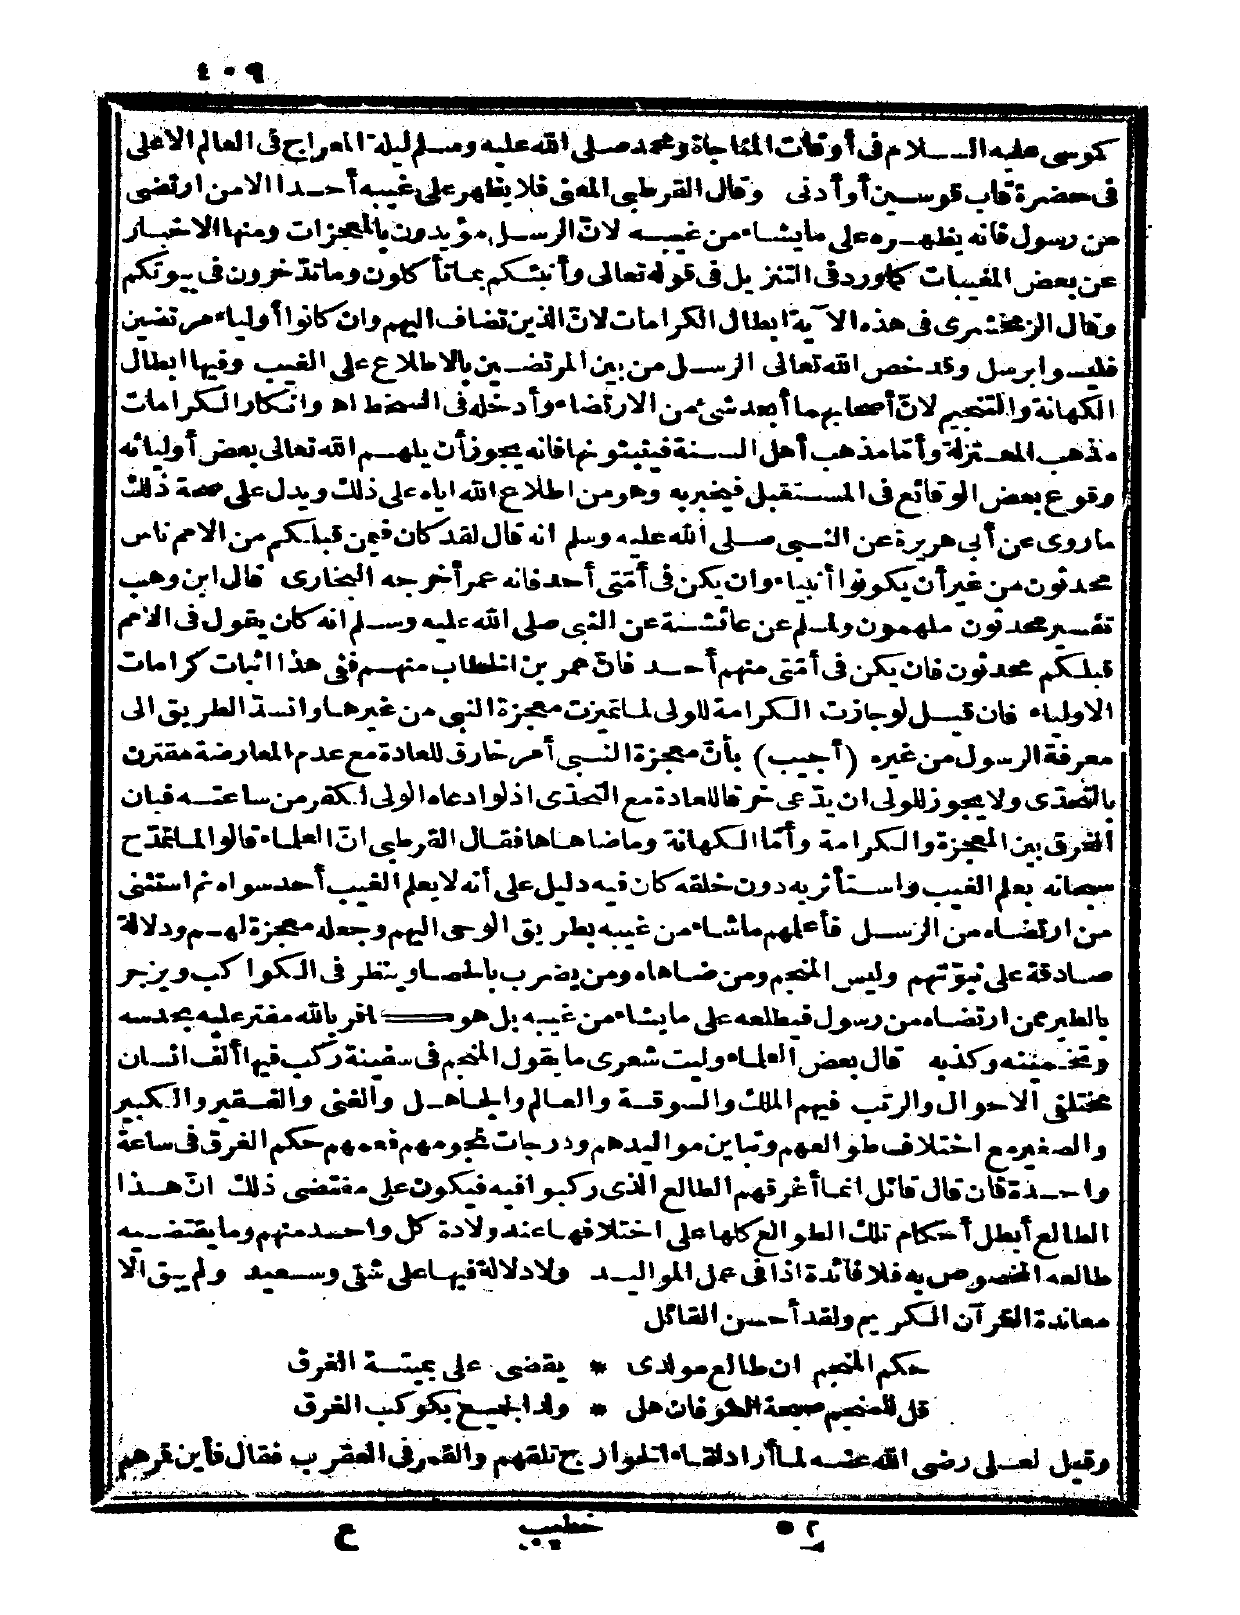 ٤٠٩
كموسى عليه السلام فى أوقات المناجاة ومحمد صلى الله عليه وسلم ليلة المعراج فى العالم الاعلى
فى حضرة قاب قوسين أو أدنى وقال القرطبى المعنى فلا يظهر على غيبه أحدا الا من ارتضى
من رسول فانه يظهره على ما يشاء من غيبه لانّ الرسل مؤيدون بالمعجزات ومنها الاخبار
عن بعض المغيبات كما ورد فى التنزيل فى قوله تعالى وأنبئكم بما تأكلون وما تدّخرون فى بيوتكم
وقال الزمخشرى فى هذه الآية ابطال الكرامات لانّ الذين تضاف اليهم وان كانوا أولياء مرتضين
فليسوا برسل وقد خص الله تعالى الرسل من بين المرتضين بالاطلاع على الغيب وفيها ابطال
الكهانة والتنجيم لانّ أصحابهما أبعد شئ من الارتضاء وأدخله فى السخط اه وانكار الكرامات
مذهب المعتزلة وأمّا مذهب أهل السنة فيثبتونها فانه يجوز أن يلهم الله تعالى بعض أوليائه
وقوع بعض الوقائع فى المستقبل فيخبر به وهو من اطلاع الله اياه على ذلك ويدل على صحة ذلك
ما روى عن أبى هريرة عن النبى صلى الله عليه وسلم انه قال لقد كان فيمن قبلكم من الامم ناس
محدثون من غير أن يكونوا أنبياء وان يكن فى أمّتى أحد فانه عمر أخرجه البخارى قال ابن وهب
تفسير محدثون ملهمون ولمسلم عن عائشة عن النبى صلى الله عليه وسلم انه كان يقول فى الامم
قبلكم محدثون فان يكن فى أمّتى منهم أحد فانّ عمر بن الخطاب منهم ففى هذا اثبات كرامات
الاولياء فان قيل لو جازت الكرامة للولى لما تميزت معجزة النبى من غيرها وانسدّ الطريق الى
معرفة الرسول من غيره (أجيب) بأنّ معجزة النبى أمر خارق للعادة مع عدم المعارضة مقترن
بالتحدّى ولا يجوز للولى ان يدّعى خرقا للعادة مع التحدّى اذ لو ادعاه الولى لكفر من ساعته فبان
الفرق بين المعجزة والكرامة وأمّا الكهانة وما ضاهاها فقال القرطبى انّ العلماء قالوا لما تمدّح
سبحانه بعلم الغيب واستأثر به دون خلقه كان فيه دليل على أنه لا يعلم الغيب أحد سواه ثم استثنى
من ارتضاه من الرسل فأعلمهم ما شاء من غيبه بطريق الوحى اليهم وجعله معجزة لهم ودلالة
صادقة على نبوّتهم وليس المنجم ومن ضاهاه ومن يضرب بالحصا وينظر فى الكواكب ويزجر
بالطير ممن ارتضاه من رسول فيطلعه على ما يشاء من غيبه بل هو كافر بالله مفتر عليه بحدسه
وتخمينه وكذبه قال بعض العلماء وليت شعرى ما يقول المنجم فى سفينة ركب فيها ألف انسان
مختلفى الاحوال والرتب فيهم الملك والسوقة والعالم والجاهل والغنى والفقير والكبير
والصغير مع اختلاف طوالعهم وتباين مواليدهم ودرجات نجومهم فعمهم حكم الغرق فى ساعة
واحدة فان قال قائل انما أغرقهم الطالع الذى ركبوا فيه فيكون على مقتضى ذلك انّ هذا
الطالع أبطل أحكام تلك الطوالع كلها على اختلافها عند ولادة كل واحد منهم وما يقتضيه
طالعه المخصوص به فلا فائدة اذا فى عمل المواليد ولا دلالة فيها على شقى وسعيد ولم يبق الا
معاندة القرآن الكريم ولقد أحسن القائل
حكم المنجم ان طالع مولدى * يقضى على بميتة الغرق
قل للمنجم صبحة الطوفان هل * ولد الجميع بكوكب الغرق
وقيل لعلى رضى الله عنه لما أراد لقاء الخوارج تلقهم والقمر فى العقرب فقال فأين قمرهم
٥٢ خطيب ع